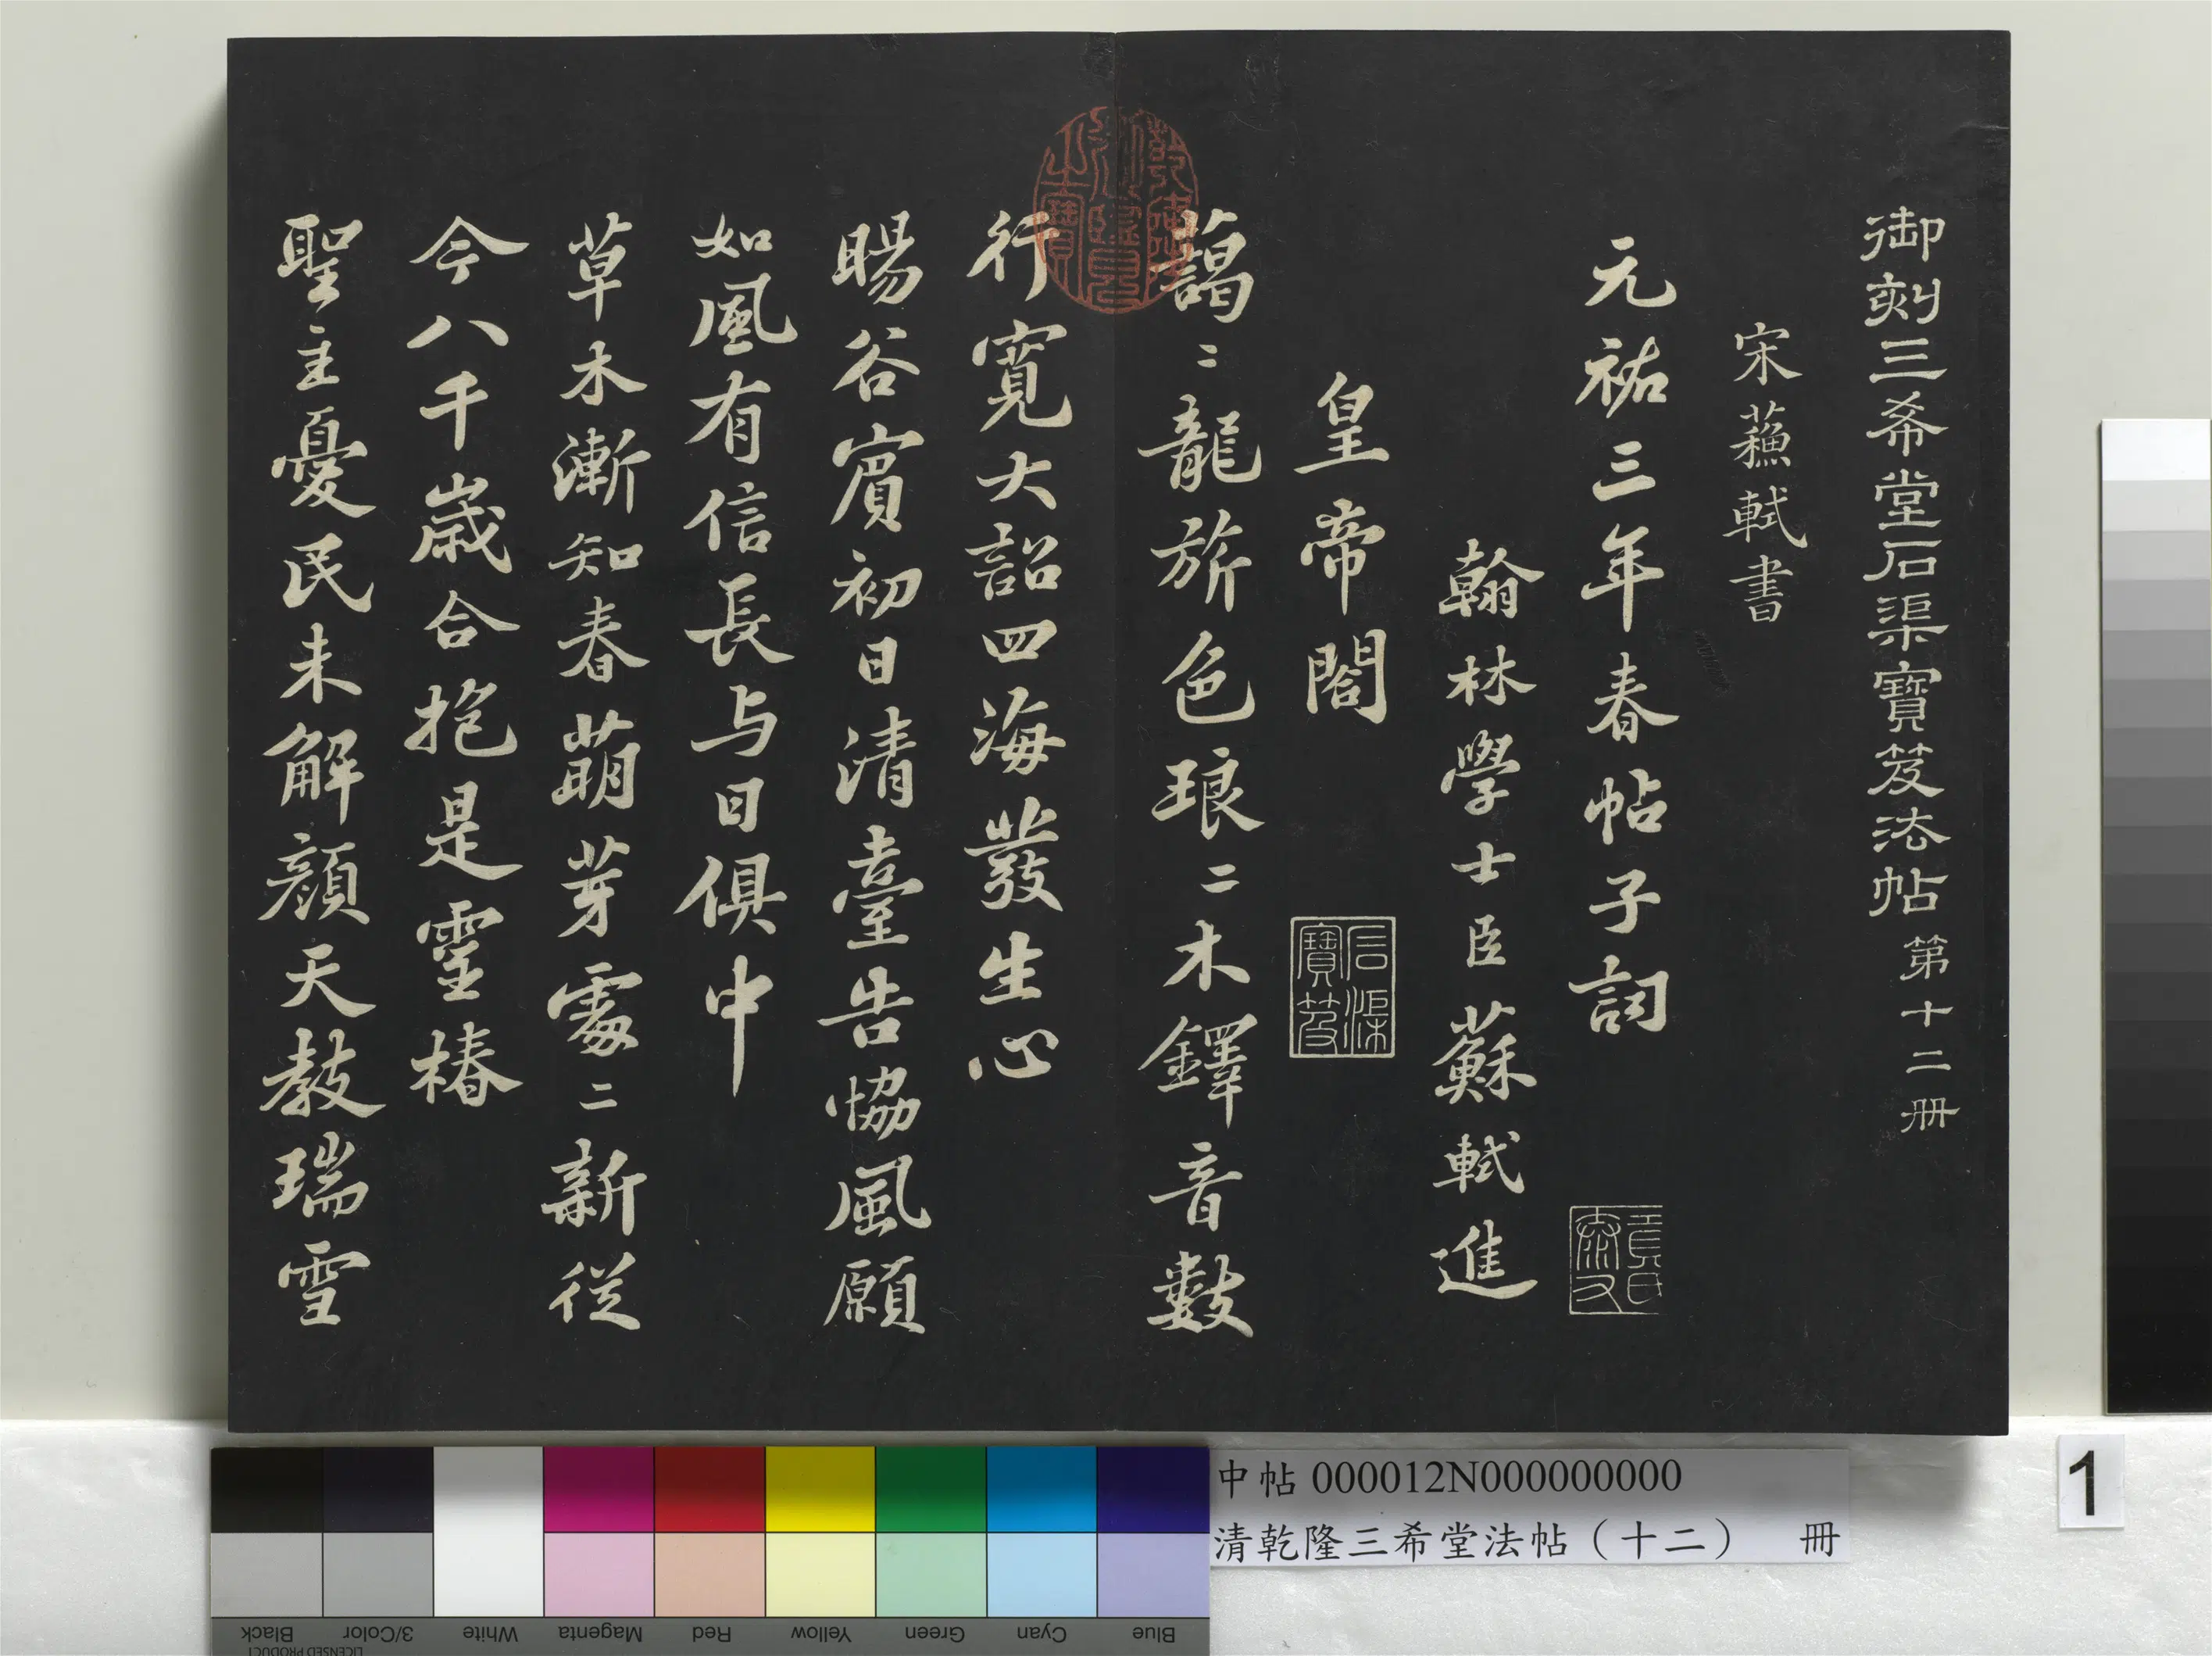 御刻三希堂石渠寶笈法帖第十二册
宋蘓軾書
元祐三年春帖子詞
翰林學士臣蘇軾進
皇帝閤
石渠寶笈
藹〻龍旂色琅〻木鐸音數
行寬大詔四海發生心
暘谷賓初日清臺告協風願
如風有信長与日俱中
草木漸知春萌芽處〻新從
今八千歲合抱是靈椿
聖主憂民未解顏天教瑞雪
乾隆
之寶
中帖 000012N000000000
清乾隆三希堂法帖（十二） 冊
1
Black
3/Color
White
Magenta
Red
Yellow
Green
Cyan
Blue
LICENSED PRODUCT